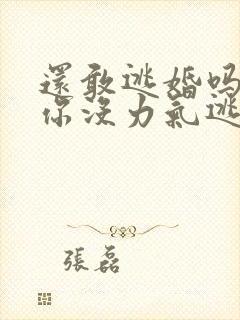 還敢逃婚吗
你没力氣逃
張磊